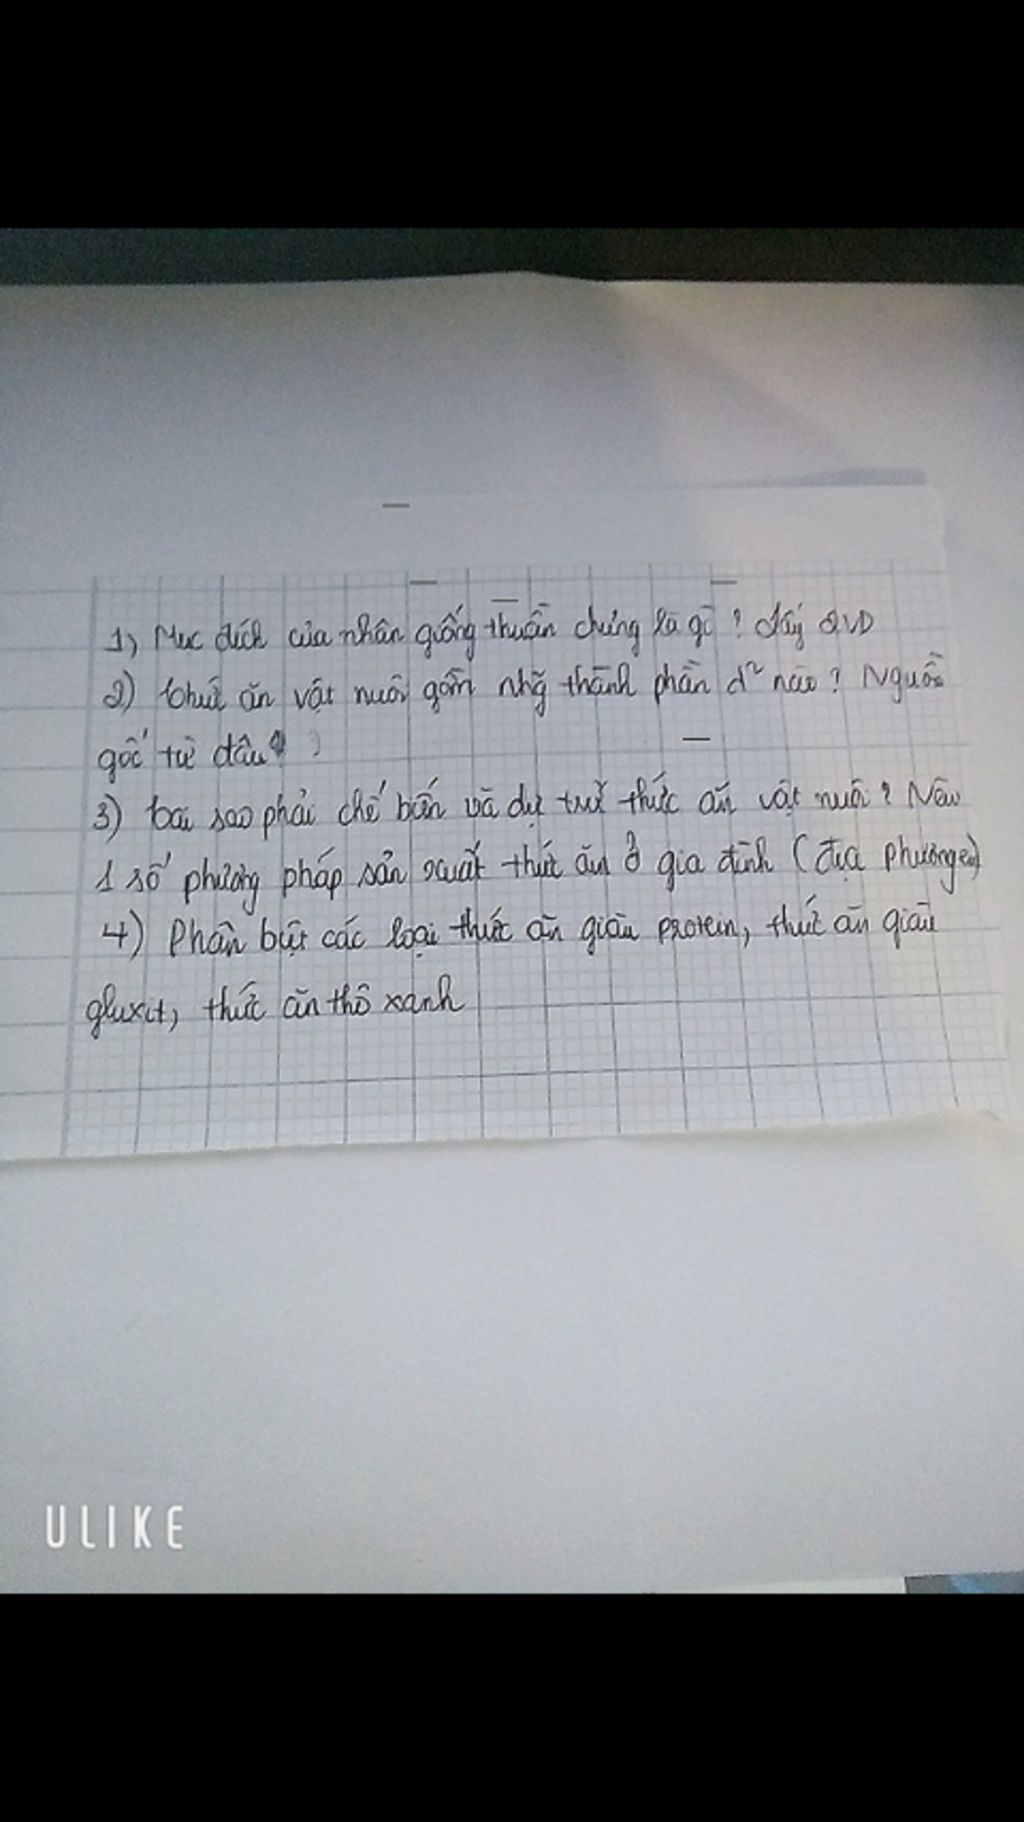 1) Mục đích của nhân giống thuần chủng là gì? lấy 2VD
2) thức ăn vật nuôi gồm nhg̃ thành phần d² nào? Nguồn
gốc từ đâu?
3) tại sao phải chế biến và dự trữ thức ăn vật nuôi? Nêu
1 số phương pháp sản xuất thức ăn ở gia đình (địa phương em)
4) Phân biệt các loại thức ăn giàu protein, thức ăn giàu
gluxit, thức ăn thô xanh
ULIKE